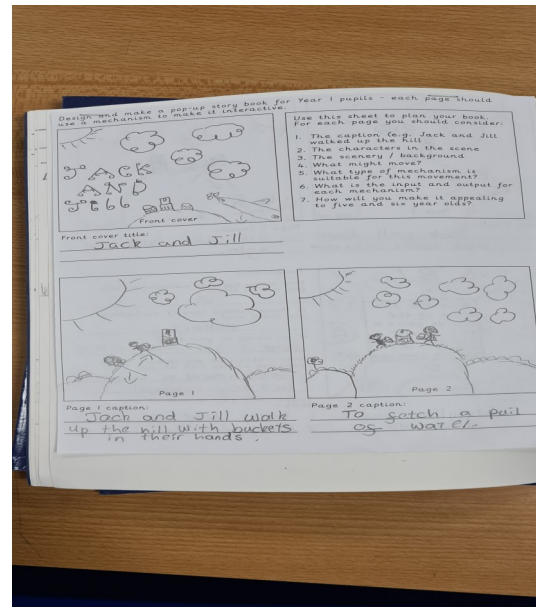 Design and make a pop-up story book for Year 1 pupils - each page should
use a mechanism to make it interactive.
JACK
AND
Jill
Front cover
Front cover title:
Jack and Jill
Use this sheet to plan your book.
For each page you should consider:
1. The caption (e.g. Jack and Jill
walked up the hill
2. The characters in the scene
3. The scenery / background
4. What might move?
5. What type of mechanism is
suitable for this movement?
6. What is the input and output for
each mechanism?
7. How will you make it appealing
to five and six year olds?
Page 1
Page 1 caption:
Jack and Jill walk
up the hill with buckets
in their hands.
Page 2
Page 2 caption:
To fetch a pail
of water.